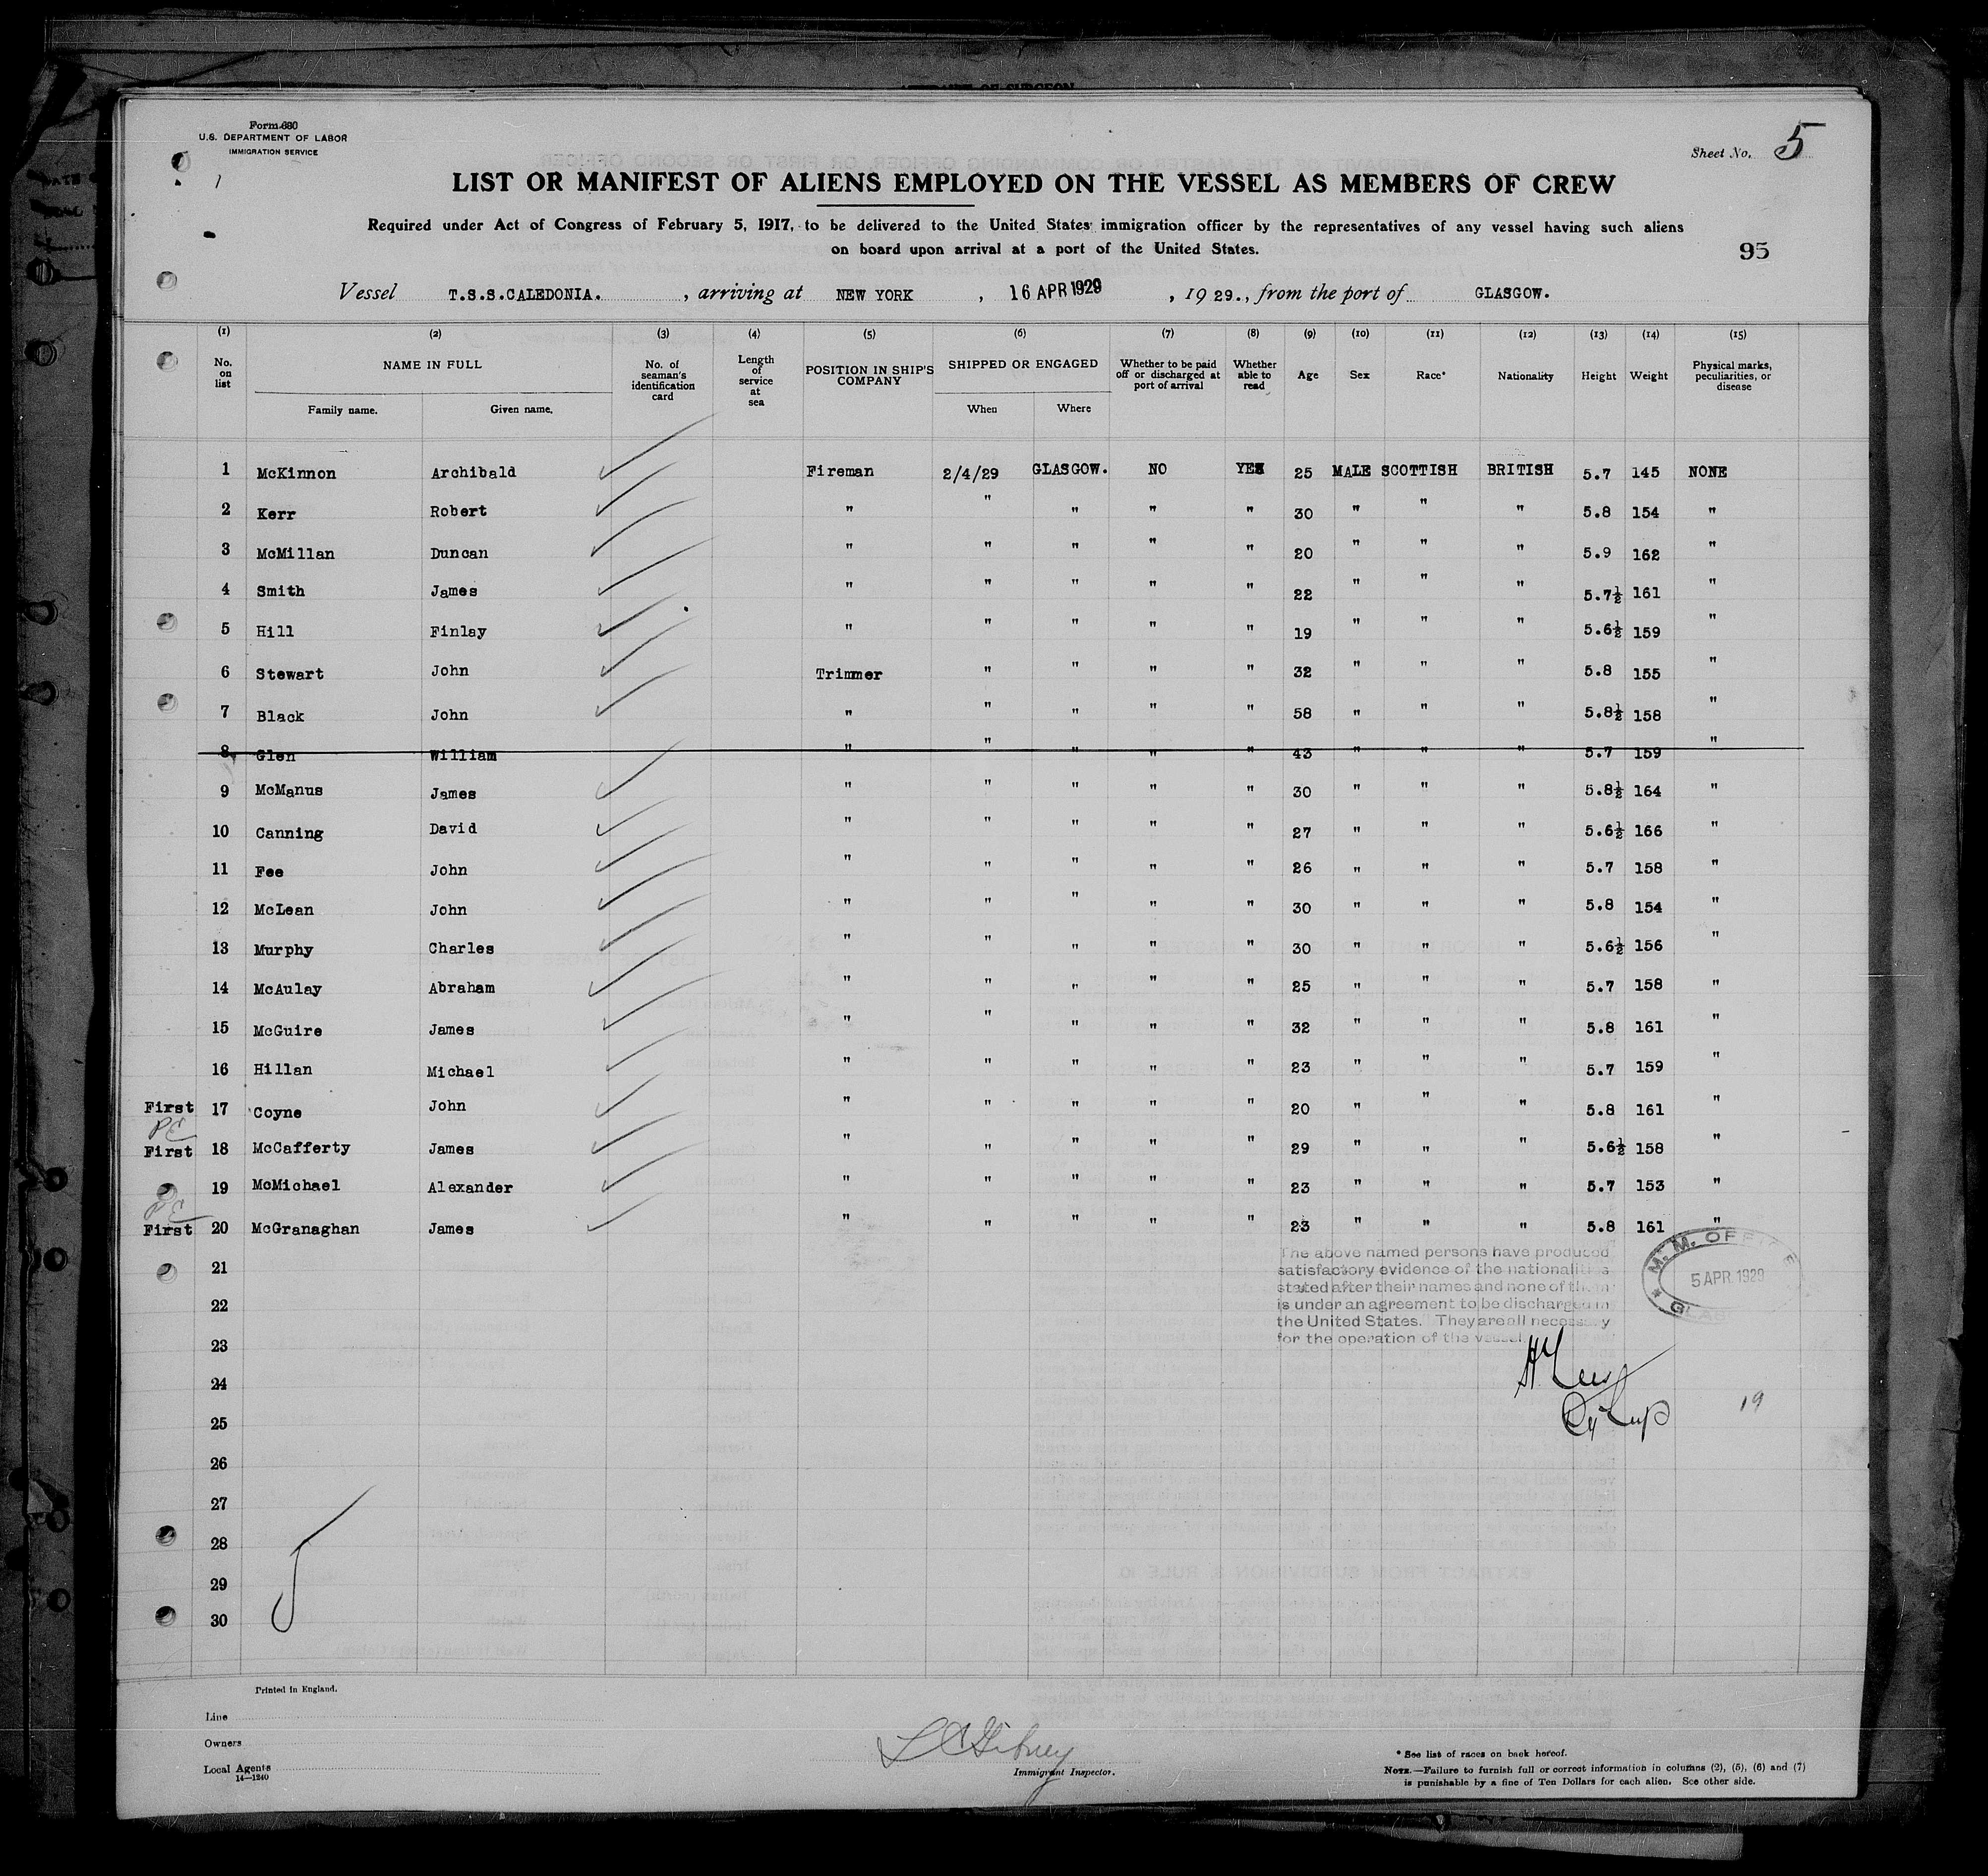 Form 680
U.S. DEPARTMENT OF LABOR
IMMIGRATION SERVICE
Sheet No. 5
LIST OR MANIFEST OF ALIENS EMPLOYED ON THE VESSEL AS MEMBERS OF CREW
Required under Act of Congress of February 5, 1917, to be delivered to the United States immigration officer by the representatives of any vessel having such aliens
on board upon arrival at a port of the United States.
95
Vessel T.S.S.CALEDONIA. , arriving at NEW YORK , 16 APR 1929 , 1929., from the port of GLASGOW.
(1) (2) (3) (4) (5) (6) (7) (8) (9) (10) (11) (12) (13) (14) (15)
No. on list NAME IN FULL Family name. Given name. No. of seaman's identification card Length of service at sea POSITION IN SHIP'S COMPANY SHIPPED OR ENGAGED When Where Whether to be paid off or discharged at port of arrival Whether able to read Age Sex Race* Nationality Height Weight Physical marks, peculiarities, or disease
1 McKinnon Archibald Fireman 2/4/29 GLASGOW. NO YES 25 MALE SCOTTISH BRITISH 5.7 145 NONE
2 Kerr Robert " " " " " 30 " " " 5.8 154 "
3 McMillan Duncan " " " " " 20 " " " 5.9 162 "
4 Smith James " " " " " 22 " " " 5.7½ 161 "
5 Hill Finlay " " " " " 19 " " " 5.6½ 159 "
6 Stewart John Trimmer " " " " 32 " " " 5.8 155 "
7 Black John " " " " " 58 " " " 5.8½ 158 "
8 Glen William " " " " " 43 " " " 5.7 159 "
9 McManus James " " " " " 30 " " " 5.8½ 164 "
10 Canning David " " " " " 27 " " " 5.6½ 166 "
11 Fee John " " " " " 26 " " " 5.7 158 "
12 McLean John " " " " " 30 " " " 5.8 154 "
13 Murphy Charles " " " " " 30 " " " 5.6½ 156 "
14 McAulay Abraham " " " " " 25 " " " 5.7 158 "
15 McGuire James " " " " " 32 " " " 5.8 161 "
16 Hillan Michael " " " " " 23 " " " 5.7 159 "
First 17 Coyne John " " " " " 20 " " " 5.8 161 "
PE
First 18 McCafferty James " " " " " 29 " " " 5.6½ 158 "
19 McMichael Alexander " " " " " 23 " " " 5.7 153 "
PE
First 20 McGranaghan James " " " " " 23 " " " 5.8 161 "
The above named persons have produced
satisfactory evidence of the nationalities
stated after their names and none of them
is under an agreement to be discharged in
the United States. They are all necessary
for the operation of the vessel.
M. M. OFFICE
5 APR 1929
GLAS
21
22
23
24
25
26
27
28
29
30
19
Printed in England.
Line
Owners
Local Agents
14—1240
Immigrant Inspector.
* See list of races on back hereof.
NOTE.—Failure to furnish full or correct information in columns (2), (5), (6) and (7)
is punishable by a fine of Ten Dollars for each alien. See other side.